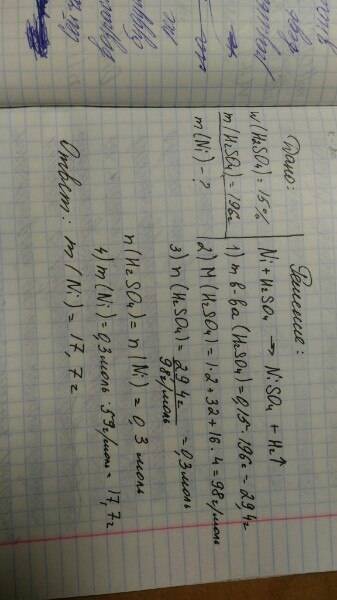 Дано:
w(H₂SO₄) = 15%
m(H₂SO₄) = 196г
m(Ni) - ?
Решение:
Ni + H₂SO₄ → NiSO₄ + H₂↑
1) m в-ва (H₂SO₄) = 0,15 · 196г = 29,4г
2) M(H₂SO₄) = 1·2 + 32 + 16·4 = 98г/моль
3) n(H₂SO₄) = 29,4г / 98г/моль = 0,3моль
n(H₂SO₄) = n(Ni) = 0,3 моль
4) m(Ni) = 0,3моль · 59г/моль = 17,7г
Ответ: m(Ni) = 17,7г